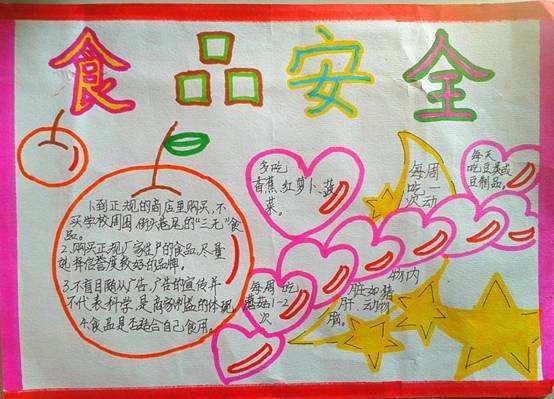 食品安全
1.到正规的商店里购买,不
买学校周围、街头巷尾的“三无”食
品。
2.购买正规厂家生产的食品,尽量
选择信誉度较好的品牌。
3.不盲目随从广告,广告的宣传并
不代表科学,是商家利益的体现。
4.食品是否适合自己食用。
多吃
香蕉、红萝卜、蔬
菜。
每周
吃一
次动
物内
脏如猪
肝、动物
脑。
每天
吃豆类或
豆制品。
每周吃
蘑菇1-2
次